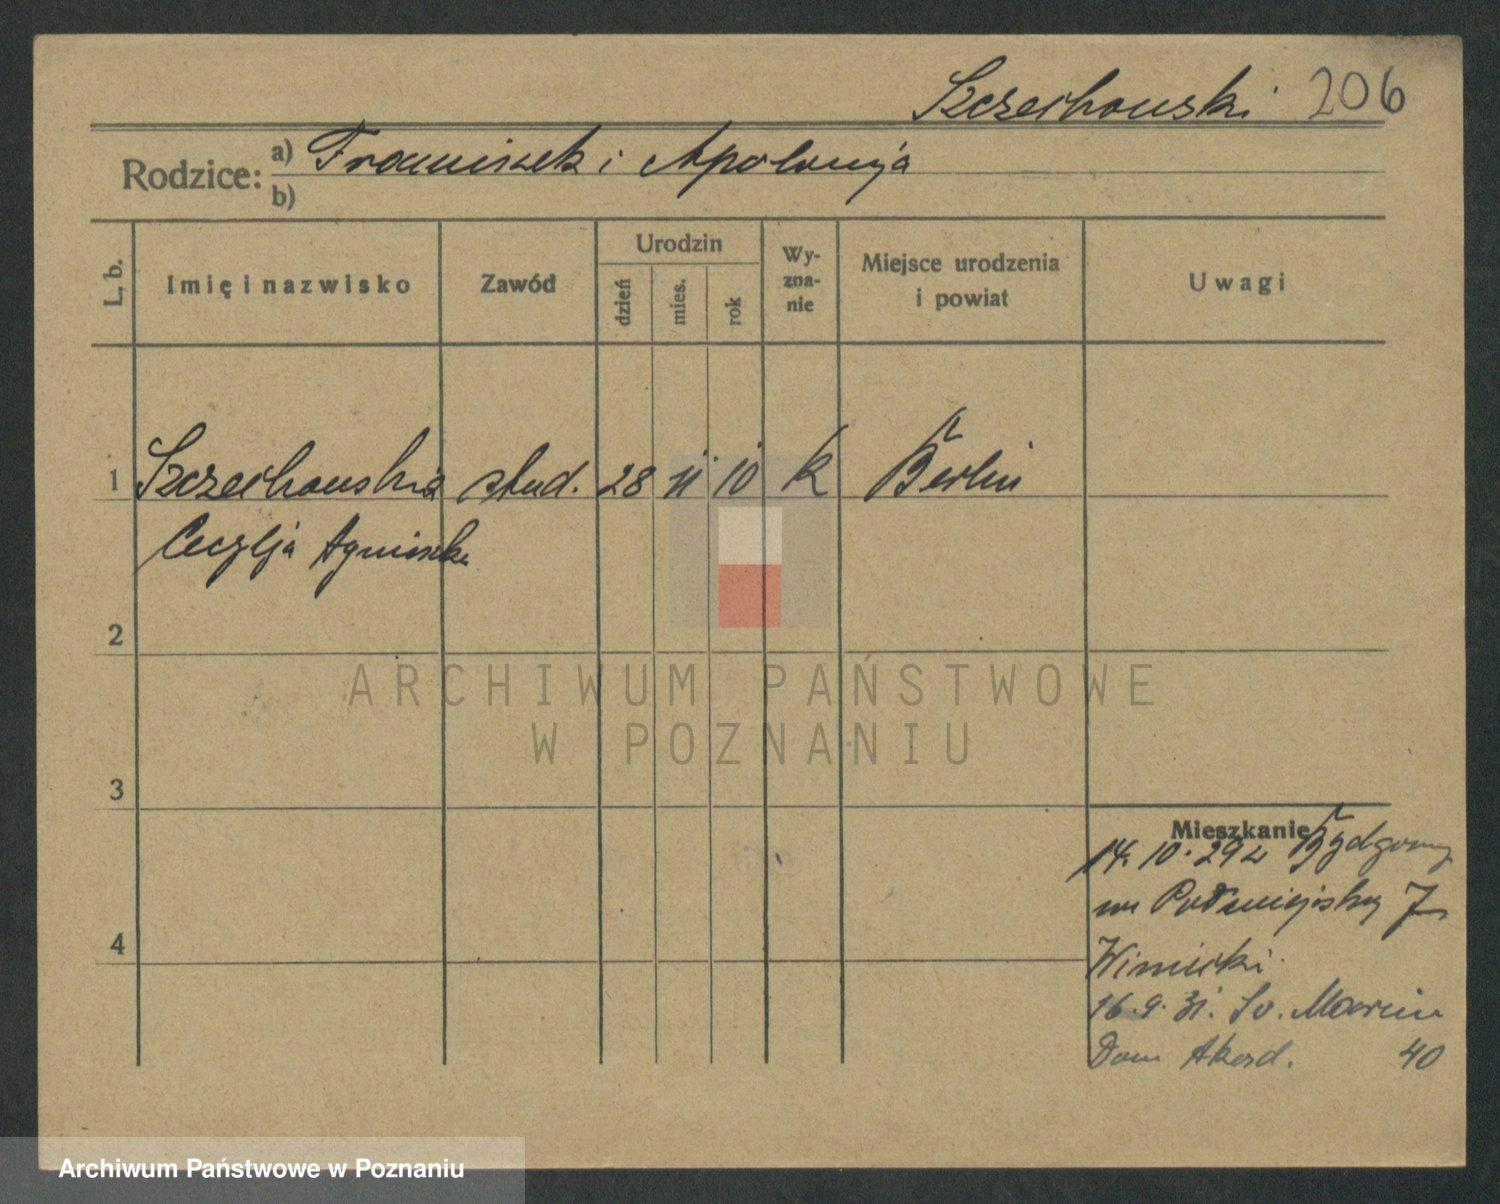 Szczechowski 206
Rodzice: a) Franciszek i Apolonja
b)
L. b. Imię i nazwisko Zawód Urodzin dzień mies. rok Wyznanie Miejsce urodzenia i powiat Uwagi
1 Szczechowska stud. 28 11 10 k Berlin
Cecylja Agnieszka
2
ARCHIWUM PAŃSTWOWE
W POZNANIU
3
Mieszkanie
14. 10. 29 z Bydgoszczy
7
4
Winiecki
16. 9. 31. Św. Marcin
Dom Akad. 40
Archiwum Państwowe w Poznaniu